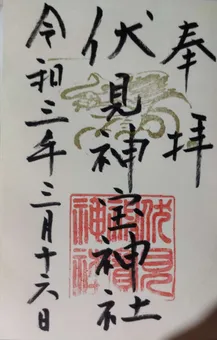 奉拝
伏見神宝神社
令和三年三月十六日
伏見
神寳
神社